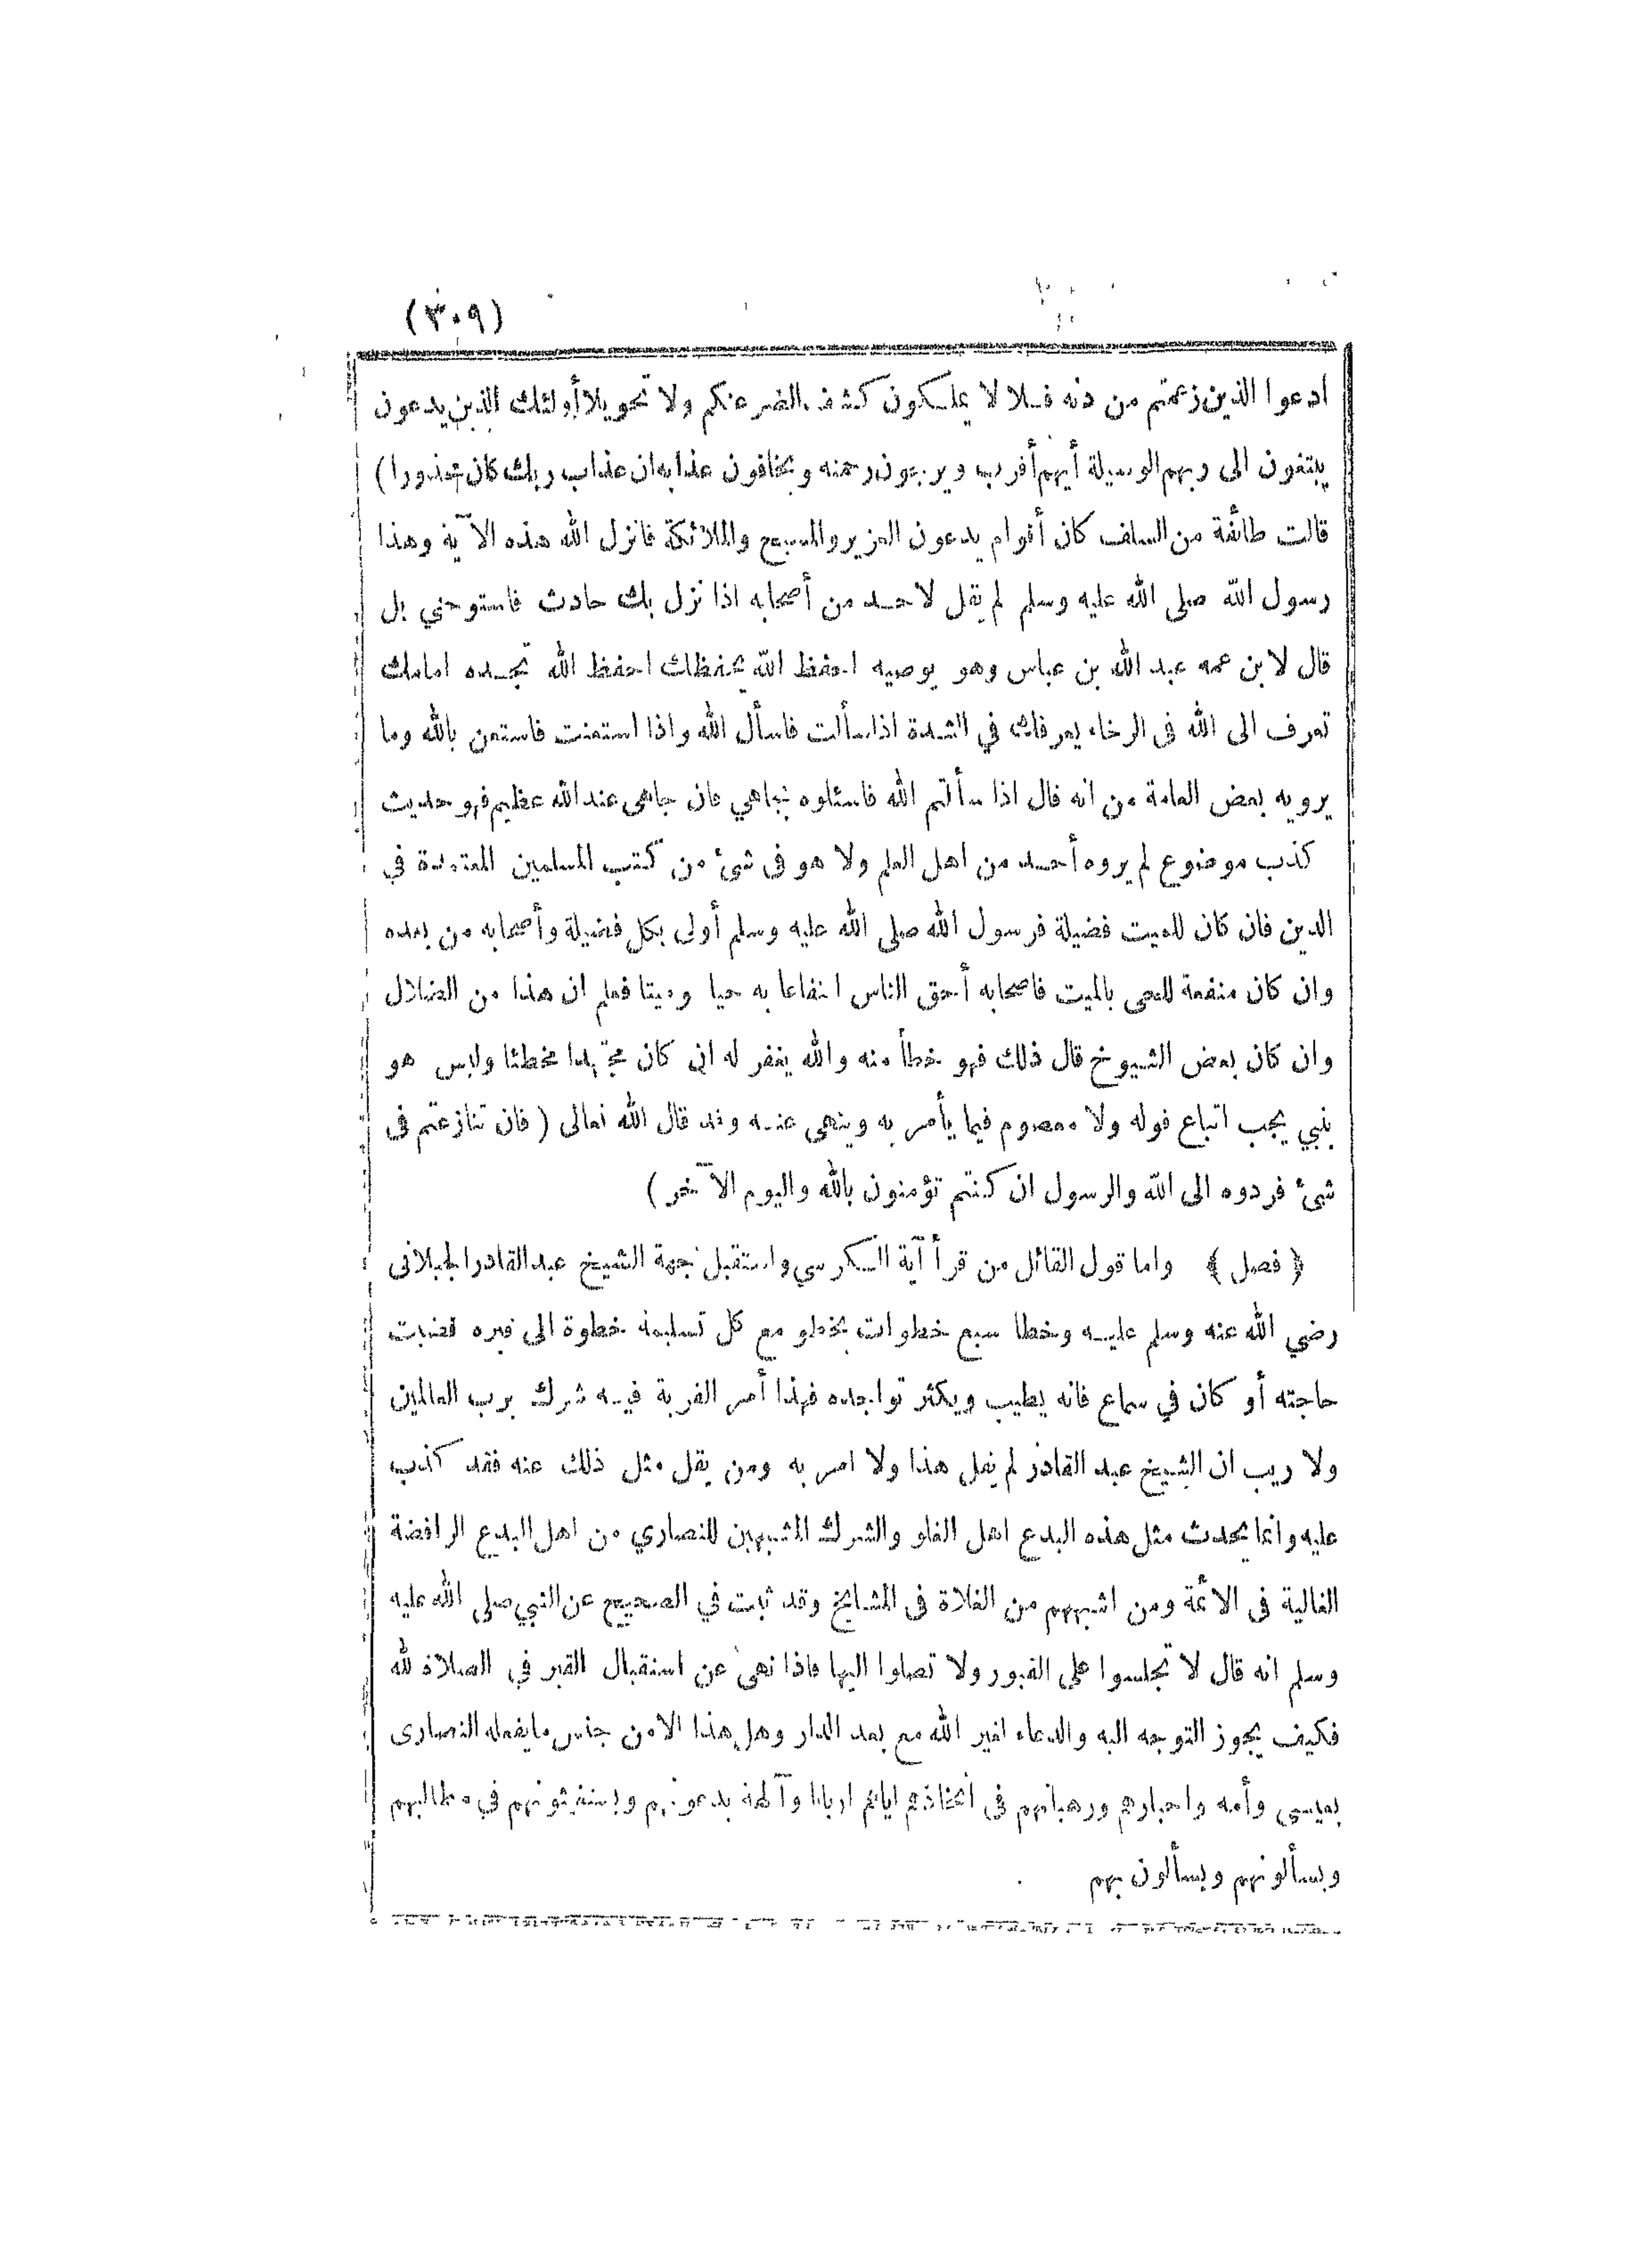 (٣٠٩)
ادعوا الذين زعمتم من دنه فلا لا يملكون كشف الضر عنكم ولا تحويلا أولئك الذين يدعون
يبتغون الى ربهم الوسيلة أيهم أقرب ويرجون رحمته ويخافون عذابه ان عذاب ربك كان محذورا)
قالت طائفة من السلف كان أقوام يدعون العزير والمسيح والملائكة فانزل الله هذه الآية وهذا
رسول الله صلى الله عليه وسلم لم يقل لاحد من أصحابه اذا نزل بك حادث فاستوحني بل
قال لابن عمه عبد الله بن عباس وهو يوصيه احفظ الله يحفظك احفظ الله تجده امامك
تعرف الى الله فى الرخاء يعرفك في الشدة اذا سألت فاسأل الله واذا استعنت فاستعن بالله وما
يرويه بعض العامة من انه قال اذا سألتم الله فاسئلوه بجاهي فان جاهى عند الله عظيم فهو حديث
كذب موضوع لم يروه أحد من اهل العلم ولا هو فى شئ من كتب المسلمين المعتمدة في
الدين فان كان للميت فضيلة فرسول الله صلى الله عليه وسلم أولى بكل فضيلة وأصحابه من بعده
وان كان منفعة للحى بالميت فاصحابه أحق الناس انتفاعا به حيا وميتا فعلم ان هذا من الضلال
وان كان بعض الشيوخ قال ذلك فهو خطأ منه والله يغفر له ان كان مجتهدا مخطئا وليس هو
بنبي يجب اتباع قوله ولا معصوم فيما يأمر به وينهى عنه وقد قال الله تعالى (فان تنازعتم فى
شئ فردوه الى الله والرسول ان كنتم تؤمنون بالله واليوم الآخر)
﴿فصل﴾ واما قول القائل من قرأ آية الكرسي واستقبل جهة الشيخ عبد القادر الجيلانى
رضي الله عنه وسلم عليه وخطا سبع خطوات يخطو مع كل تسليمة خطوة الى قبره قضيت
حاجته أو كان في سماع فانه يطيب ويكثر تواجده فهذا أمر القربة فيه شرك برب العالمين
ولا ريب ان الشيخ عبد القادر لم يقل هذا ولا امر به ومن يقل مثل ذلك عنه فقد كذب
عليه وانما يحدث مثل هذه البدع اهل الغلو والشرك المشبهين للنصاري من اهل البدع الرافضة
الغالية فى الائمة ومن اشبههم من الغلاة فى المشايخ وقد ثبت في الصحيح عن النبي صلى الله عليه
وسلم انه قال لا تجلسوا على القبور ولا تصلوا اليها فاذا نهى عن استقبال القبر في الصلاة لله
فكيف يجوز التوجه اليه والدعاء لغير الله مع بعد الدار وهل هذا الا من جنس ما يفعله النصارى
بعيسى وأمه واحبارهم ورهبانهم فى اتخاذهم اياهم اربابا وآلهة يدعونهم ويستغيثونهم في مطالبهم
ويسألونهم ويسألون بهم